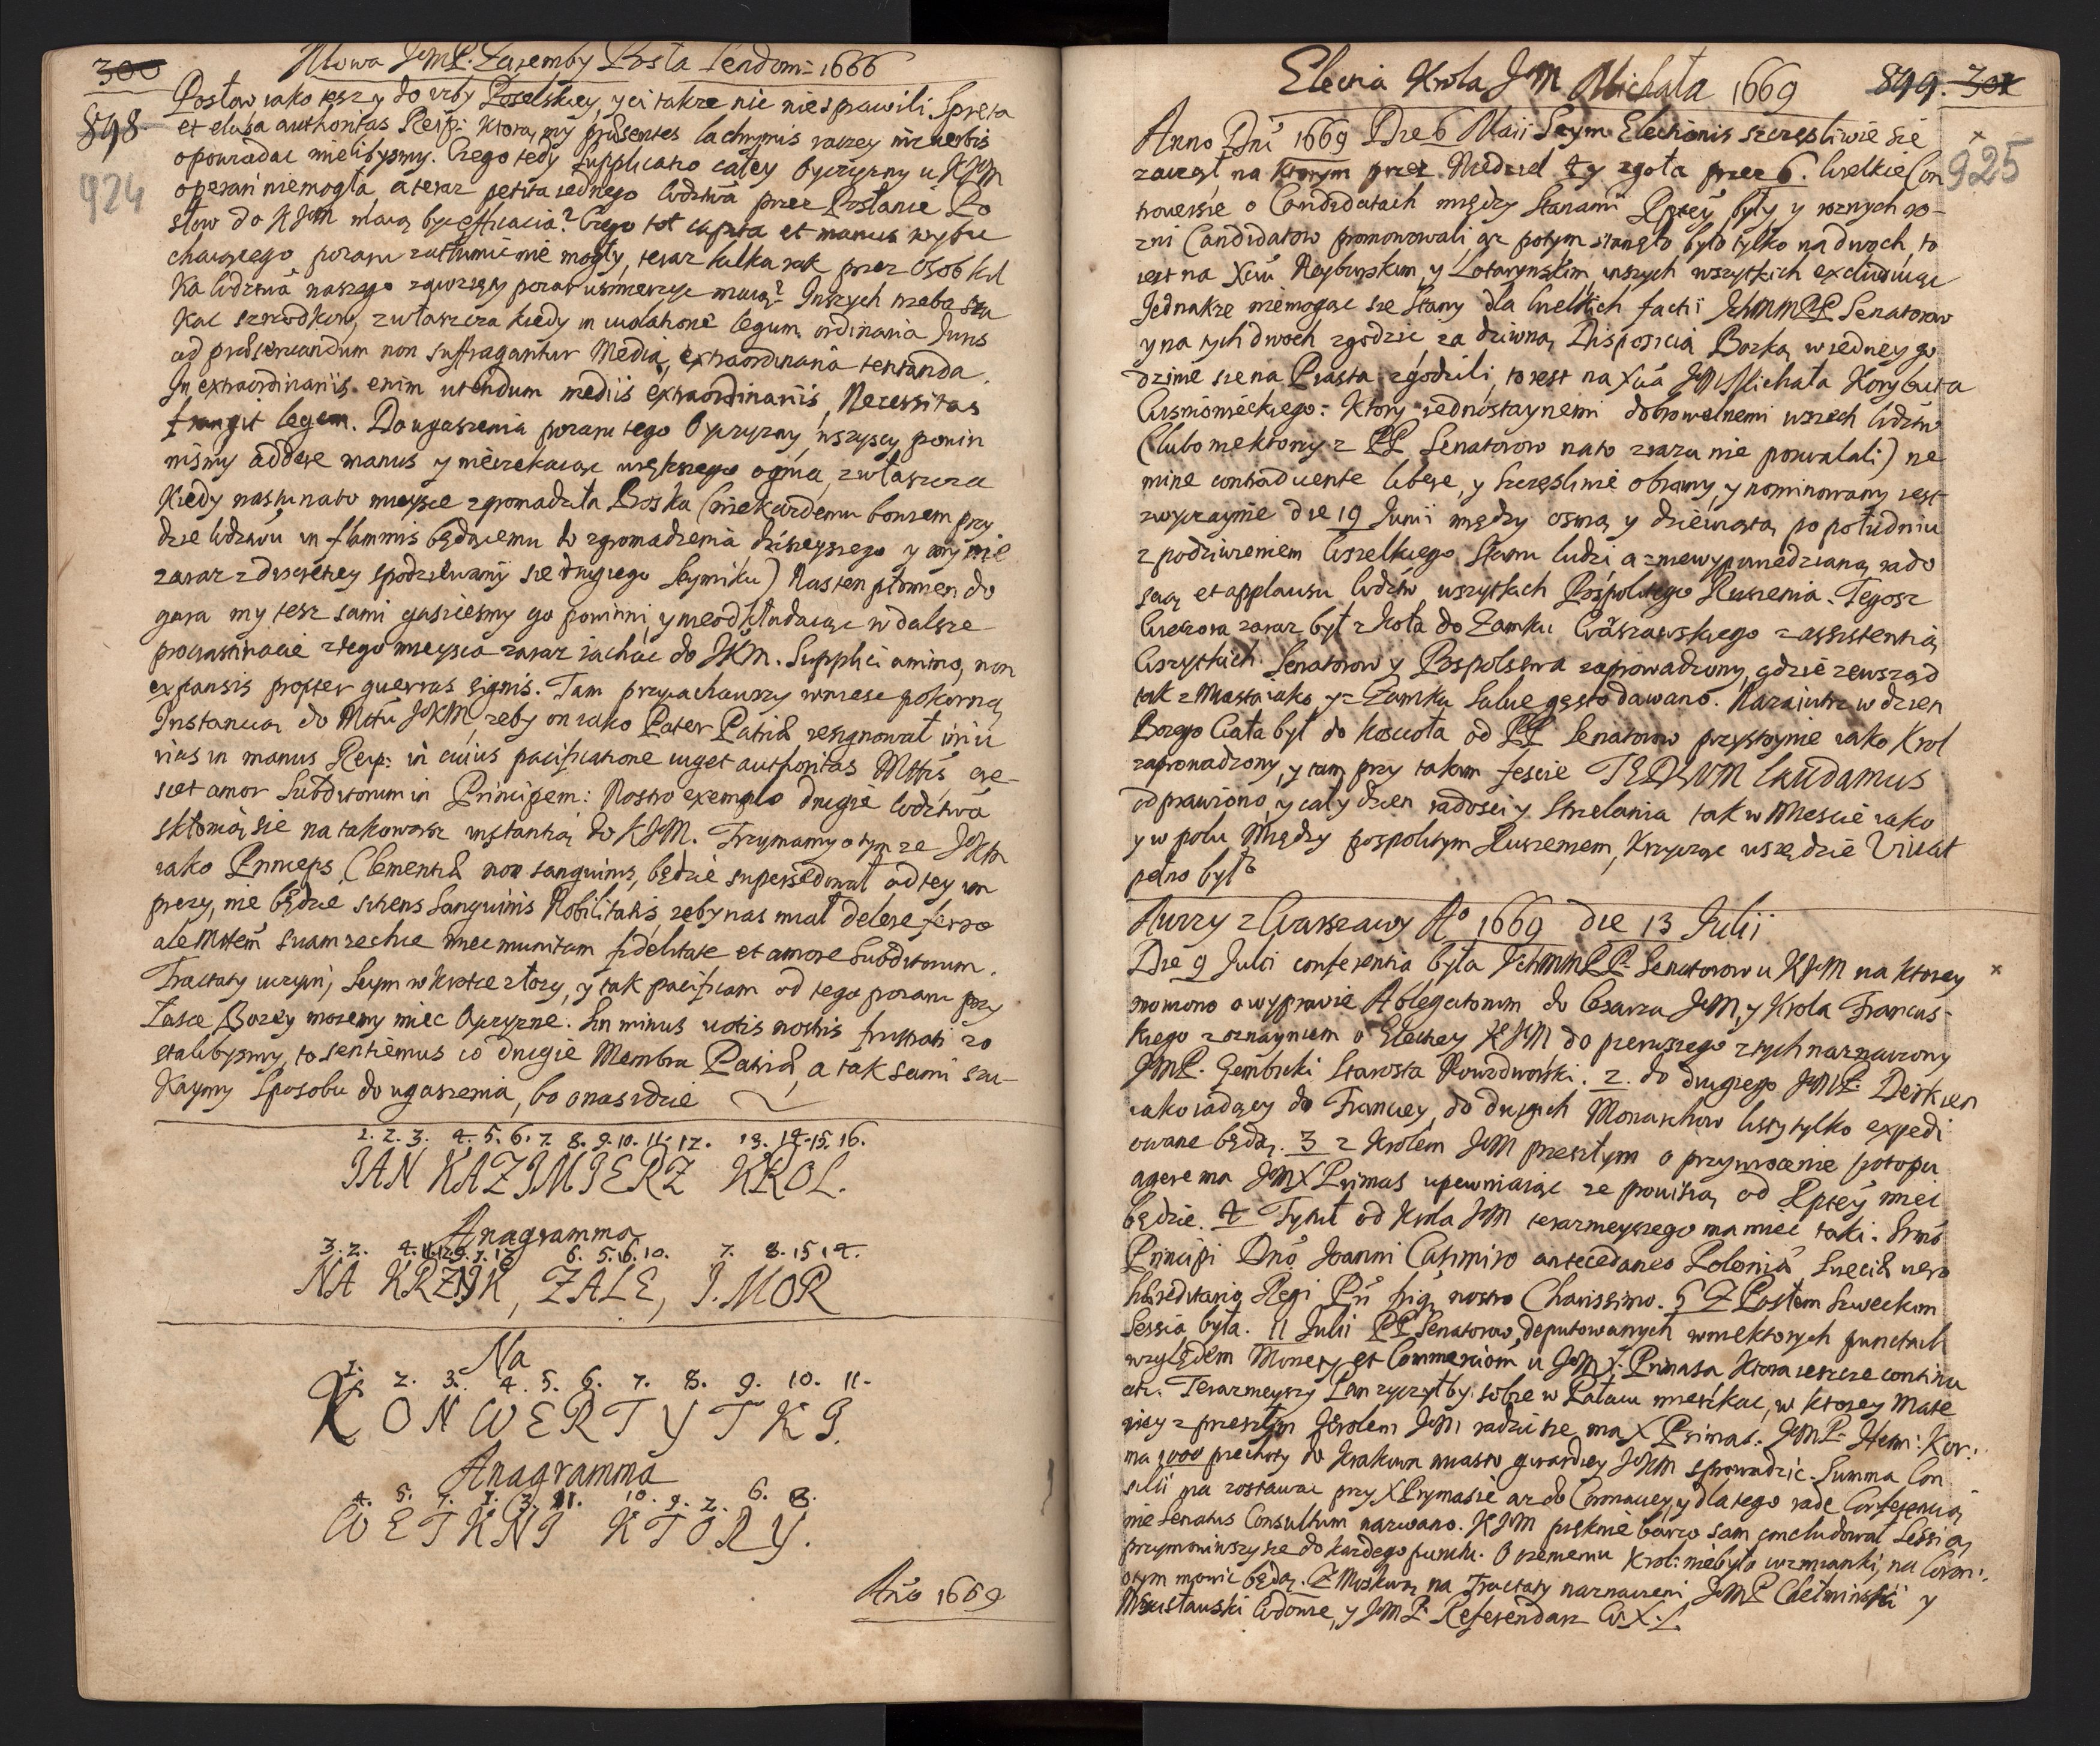 300
Mowa JeMP. Zaremby Posła Sendom: 1666
898
924
Posłow iako tesz y do izby Poselskiey, y ci takze nic niesprawili. Spreta
et elusa authoritas Reip: ktorą my præsentes lachrymis raczey niz verbis
opowiadac mielibysmy. Czego tedy supplicatio całey Oyczyzny u KJM
operari niemogła a teraz petita iednego wdztwa przez Posłanie Po
słow do KJM maią byc efficacia? Czego tot capita et manus wybu
chaiącego pozaru zatłumic nie mogły, teraz kilka rak przez Osob kil
ka wdztwa naszego zawzięty pozar usmierzyc maią? Inszych trzeba szu
kac szrodkow, zwłaszcza kiedy in violatione legum ordinaria Juris
ad præservandum non suffragantur Media, extraordinaria tentanda.
In extraordinariis enim utendum mediis extraordinariis, Necessitas
frangit legem. Do ugaszenia pozaru tego Oyczyzny, wszyscy powin
nismy addere manus y nieczekaiąc większego ognia, zwłaszcza
kiedy nas tu na to mieysce zgromadziła Boska (niekazdemu bowiem przy
dzie wdztwu in flammis będącemu do zgromadzenia dzisieyszego y my nie
zaraz z dyscretiey spodziewamy sie drugiego Seymiku) Nas ten płomien do
gara my tesz sami gasicesmy go powinni, y nieodkładaiąc w dalsze
procrastinacie z tego mieysca zaraz iachac do JKM. Supplici animo, non
expansis propter guerras signis. Tam przyiachawszy wniesc pokorną
Instancią do Mttu JKM, zeby on iako Pater Patriæ resignował iniu
rias in manus Reip: in cuius pacificatione viget authoritas Mttis cre-
scet amor Subditorum in Principem: Nostro exemplo drugie wdztwa
skłonią sie na takowąsz instantią do KJM. Trzymamy o tym ze JKM
iako Princeps Clementiæ non sanguinis, będzie supersedował od tey im
prezy, nie będzie sitiens Sanguinis Nobilitatis, zeby nas miał delere ferro
ale Mttem suam zechce miec munitam fidelitate et amore Subditorum.
Tractaty uczyni, Seym w krotce złozy, y tak pacificam od tego pozaru przy
Łasce Bozey mozemy miec Oyczyzne. Sin minus votis nostris frustrati zo
stalibysmy, to sentiemus co drugie Membra Patriæ, a tak sami szu-
kaymy sposobu do ugaszenia, bo o nas idzie
1. 2. 3. 4. 5. 6. 7. 8. 9. 10. 11. 12. 13. 14. 15. 16.
JAN KAZIMIERZ KROL.
Anagramma
3. 2. 4. 11. 12. 9. 1. 13 6. 5. 16. 10. 7. 8. 15 14.
NA KRZYK, ZALE, I. MOR
Na
1. 2. 3. 4. 5. 6. 7. 8. 9. 10. 11.
KONWERTYTKI.
Anagramma
4. 5. 7. 1. 3. 11. 10. 9. 2. 6. 8.
WETKNI KTORY.
Año 1669
Elecria Krola JeM Michała 1669
899. 301
925
Anno Dni 1669 Die 6 Maii Seym Electionis szczęsliwie sie
zaczął na ktorym przez Niedziel 4 y zgoła przez 6. wielkie Con
trowersie o Candidatach między Stanami Rptey były y roznych ro-
zni Candidatow promowowali az potym stanęło było tylko na dwoch, to
iest na Xciu Neyburskim, y Lotaryńskim, inszych wszytkich excluduiąc
Jednakze niemogąc sie Stany dla wielkich factii JchMMPP Senatorow
y na tych dwoch zgodzic za dziwną Disposicią Bozką w iedney go
dzinie sie na Piasta zgodzili, to iest na Xcia JeM Michała Korybuta
Wisniowieckiego: ktory iednostaynemi dobrowolnemi wszech wdztw
(lubo niektorzy z PP Senatorow na to zrazu nie pozwalali) ne
mine contradicente libere, y szczęsliwie obrany, y nominowany iest
zwyczaynie die 19 Junii między osmą y dziewiątą po południu
z podziwieniem wszelkiego Stanu ludzi, a z niewypowiedzianą rado
scią et applausu wdztw wszytkich Pospolitego Ruszenia. Tegosz
wieczora zaraz był z koła do Zamku Warszawskiego z assistentią
wszytkich Senatorow y Pospolstwa zaprowadzony, gdzie zewsząd
tak z Miasta iako y z Zamku Salue gęsto dawano. Nazaiutrz w dzien
Bozego Ciała był do kosciola od PP Senatorow przystoynie iako Krol
zaprowadzony, y tam przy takim fescie TEDEVM laudamus
odprawiono, y cały dzien radosci y Strzelania tak w Miescie iako
y w polu Między pospolitym Ruszeniem, krzycząc wszędzie Vivat
pełno było
Awizy z Warszawy Aº 1669 die 13 Julii
Die 9 Julii conferentia była JchMMPP Senatorow u KJM na ktorey
mowiono o wyprawie Ablegatorum do Cesarza JeM, y Krola Francus-
kiego z oznaymieniem o Electiey KJM do pierwszego z tych naznaczony
JMP. Gembicki Starosta Nowodworski. 2. do drugiego JMP. Denkier
iako iadący do Francyey, do drugich Monarchow listy tylko expedi
owane będą. 3 z Krolem JeM przeszłym o przywrocenie potopu
agere ma JeM X Primas upewniaiąc ze prowisią od Rptey miec
będzie. 4 Tytuł od Krola JeM terazneyszego ma miec taki. Srmo
Principi Dno Joanni Casimiro antecedaneo Poloniæ Sueciæ vero
hæreditario Regi Dno frī nostro Charissimo. 5 Z Posłem Szweckim
Sessia była. 11 Julii PP Senatorow deputowanych w niektorych punctach
względem Monety et Commerciorum u JeM X. Primasa ktora ieszcze continu
etr. Terazneyszy Pan zyczyłby sobie w Pałacu mieszkac, w ktorey mate
riey z przeszłym Krolem JeM radzi sie ma X Primas. JeMP Hetm: Kor:
ma 1000 piechoty do Krakowa miasto gwardiey JKM sprowadzic. Summa Con
silii ma zostawac przy X Prymasie az do Coronacyey, y dla tego radę Conferencią
nie Senatus Consultum nazwano. KJM pięknie barzo sam concludował Sessią
przymowiwszy sie do kazdego punctu. O ozenieniu Krol: niebyło wzmianki, na Coron:
o tym mowic będą. Z Moskwą na Tractaty naznaczeni JeMP Chełminski y
Mscisławski Wdowie, y JeMP Referendarz W. X. L.